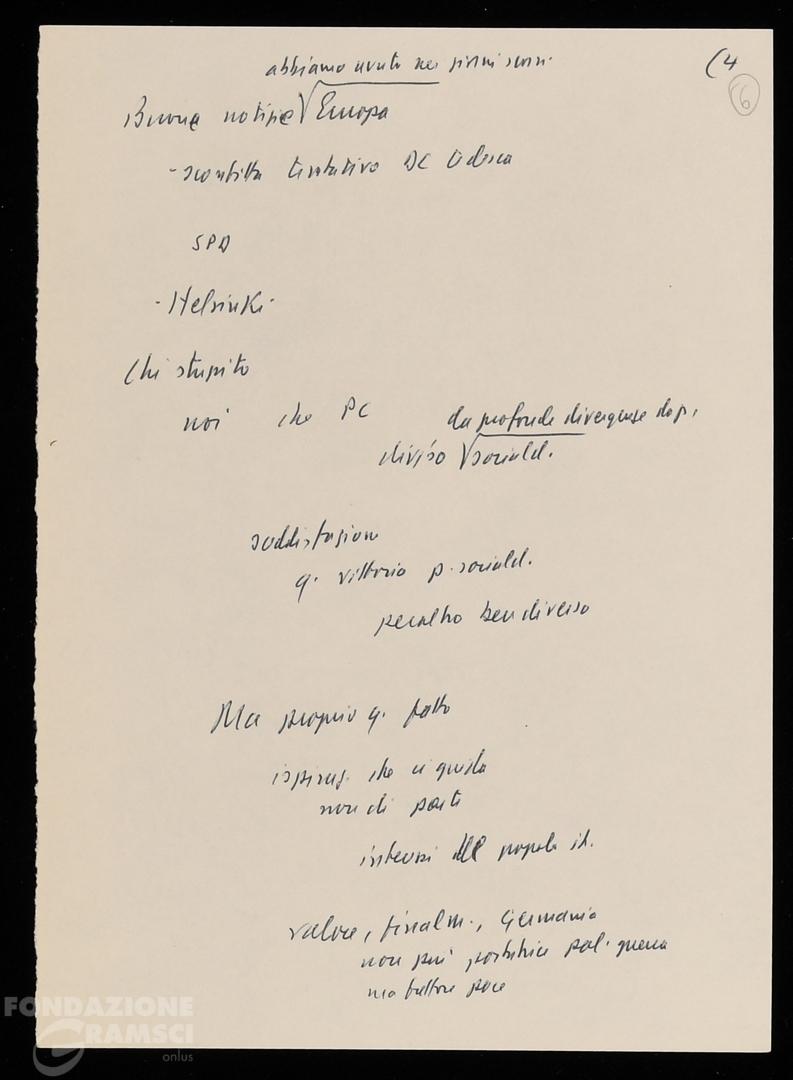 (4
6
abbiamo avuto nei giorni scorsi
Buone notizie √ Europa
- sconfitta tentativo DC tedesca
SPD
- Helsinki -
Chi stupito
noi che PC
da profonde divergenze dap.
diviso √ sociald.
soddisfazione
q. vittoria p. sociald.
peraltro ben diverso
Ma proprio q. fatto
ispiraz. che ci guida
non di parte
interessi del popolo it.
valore, finalm., Germania
non più portatrice pol. guerra
ma fattore pace
FONDAZIONE
GRAMSCI
onlus